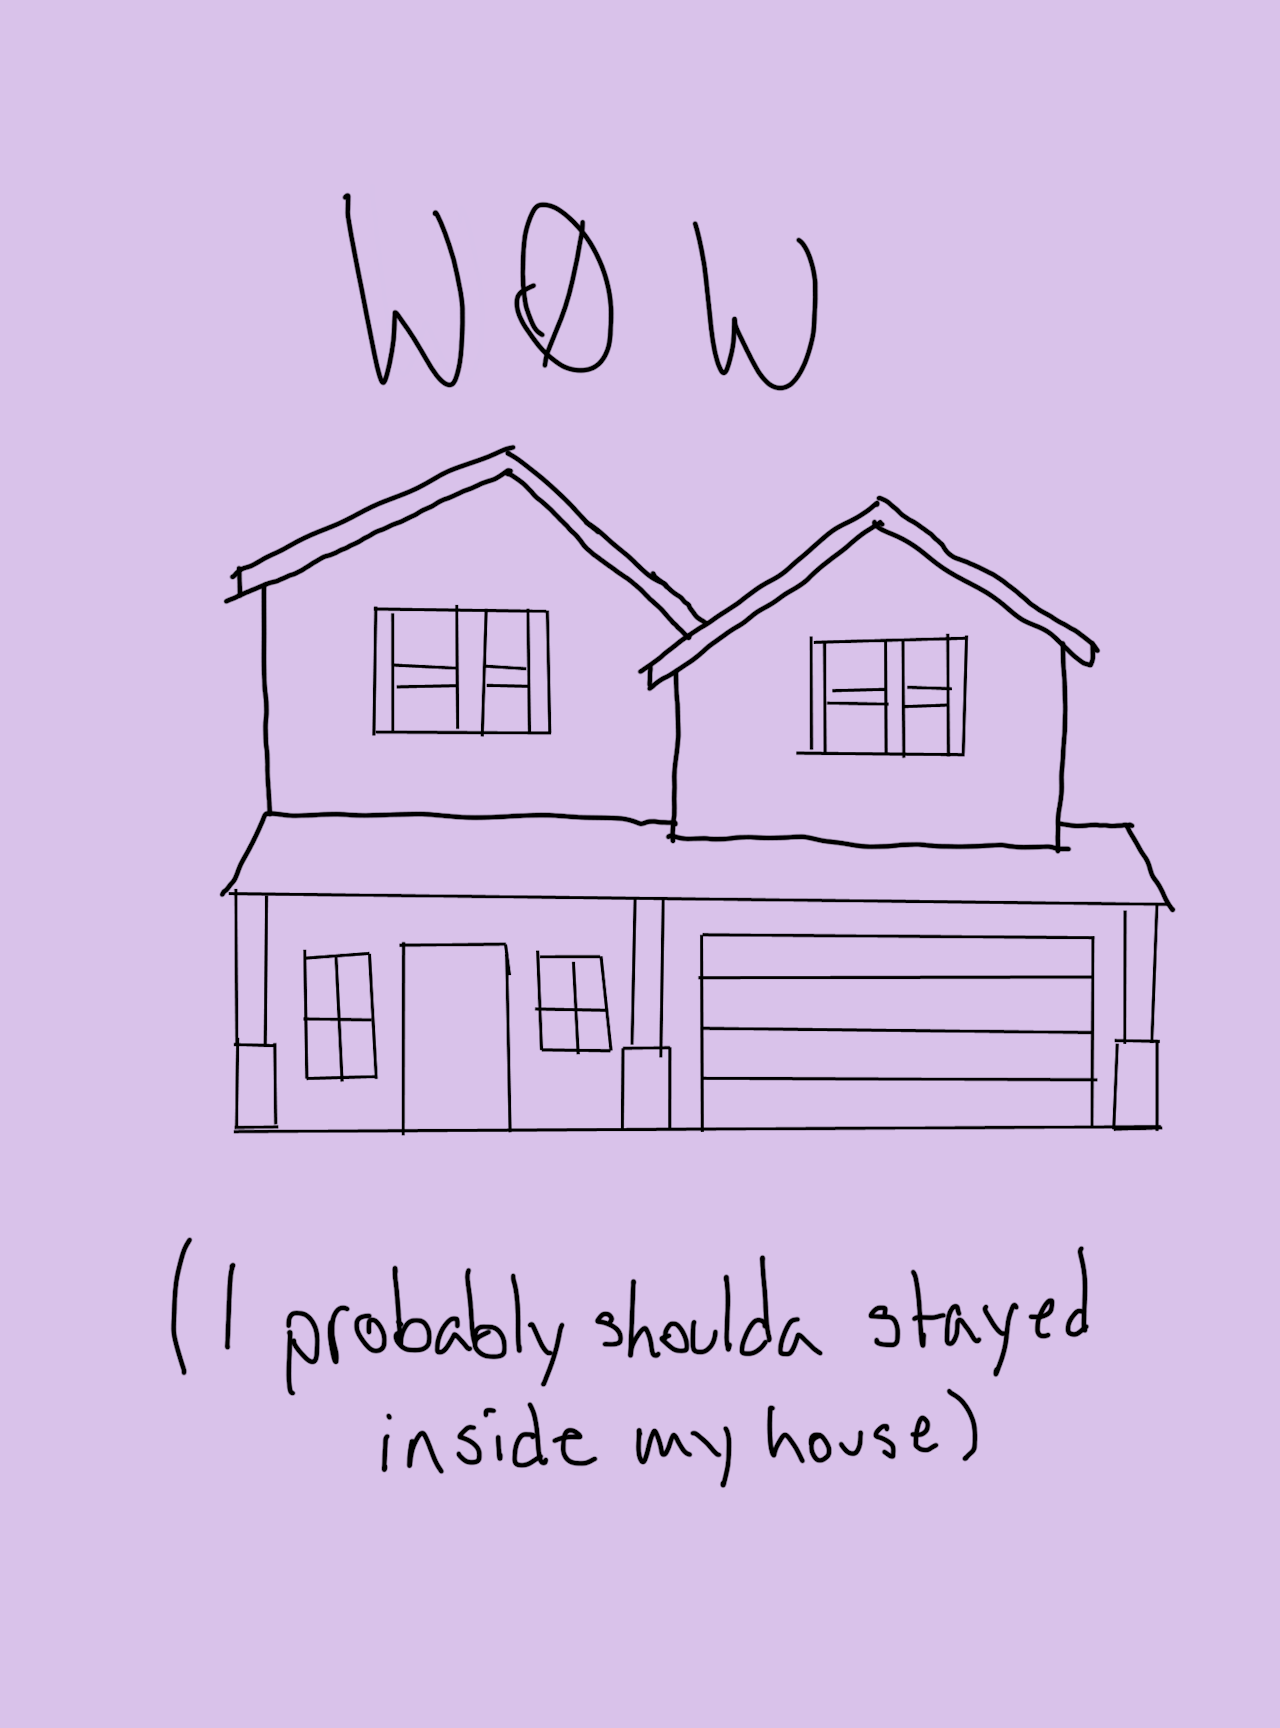 WØW
(I probably shoulda stayed
inside my house)